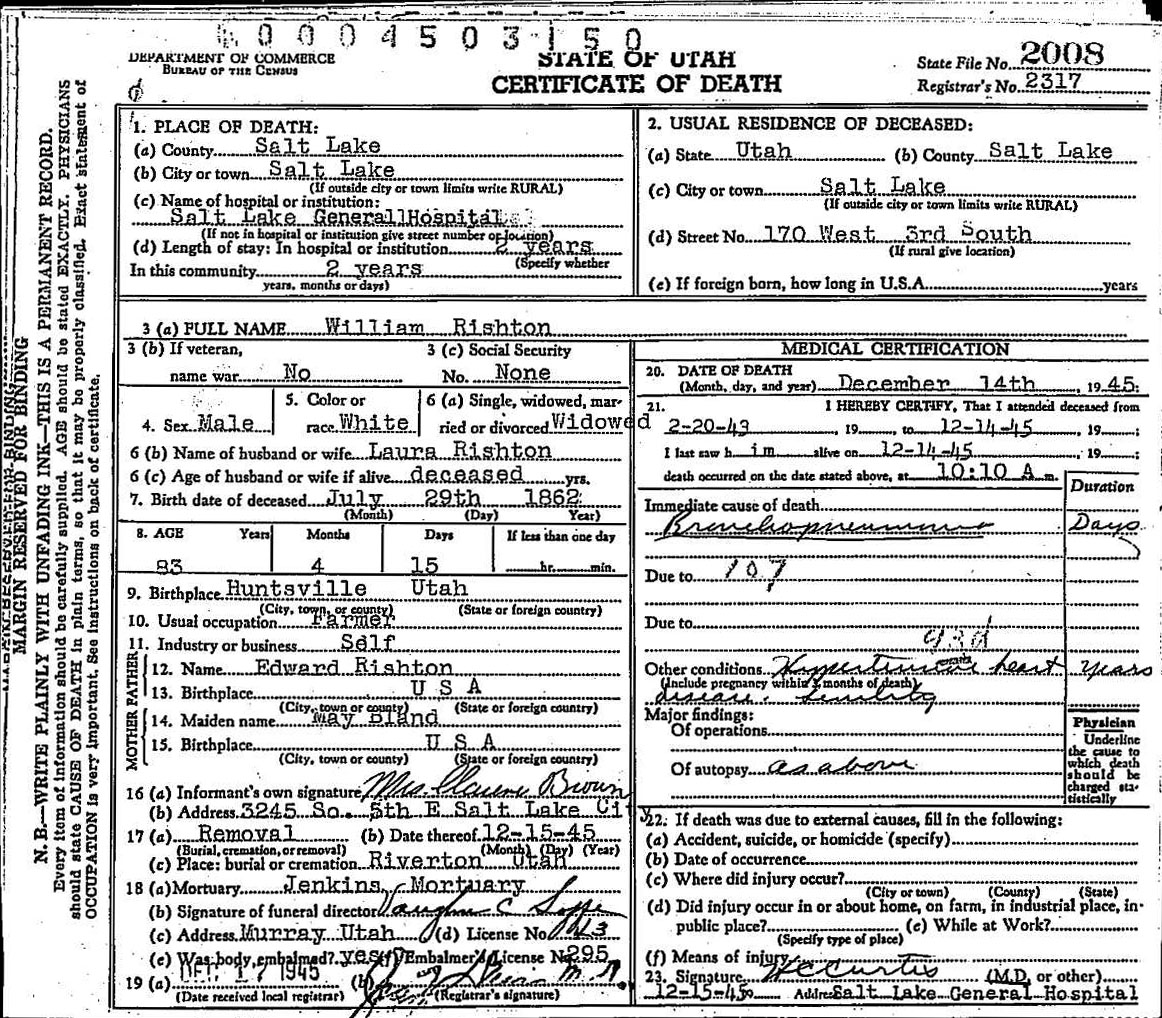 0004503150
DEPARTMENT OF COMMERCE
BUREAU OF THE CENSUS
STATE OF UTAH
CERTIFICATE OF DEATH
State File No. 2008
Registrar's No. 2317
MARGIN RESERVED FOR BINDING
N. B.—WRITE PLAINLY WITH UNFADING INK—THIS IS A PERMANENT RECORD.
Every item of information should be carefully supplied. AGE should be stated EXACTLY. PHYSICIANS
should state CAUSE OF DEATH in plain terms, so that it may be properly classified. Exact statement of
OCCUPATION is very important. See instructions on back of certificate.
1. PLACE OF DEATH:
(a) County Salt Lake
(b) City or town Salt Lake
(If outside city or town limits write RURAL)
(c) Name of hospital or institution:
Salt Lake General Hospital
(If not in hospital or institution give street number or location)
(d) Length of stay: In hospital or institution 2 years
(Specify whether
In this community 2 years
years, months or days)
2. USUAL RESIDENCE OF DECEASED:
(a) State Utah (b) County Salt Lake
(c) City or town Salt Lake
(If outside city or town limits write RURAL)
(d) Street No. 170 West 3rd South
(If rural give location)
(e) If foreign born, how long in U.S.A. years
3 (a) FULL NAME William Rishton
3 (b) If veteran,
name war No
3 (c) Social Security
No. None
4. Sex Male
5. Color or
race White
6 (a) Single, widowed, mar-
ried or divorced Widowed
6 (b) Name of husband or wife Laura Rishton
6 (c) Age of husband or wife if alive deceased yrs.
7. Birth date of deceased July 29th 1862
(Month) (Day) Year)
8. AGE Years Months Days If less than one day
83 4 15 hr. min.
9. Birthplace Huntsville Utah
(City, town, or county) (State or foreign country)
10. Usual occupation Farmer
11. Industry or business Self
FATHER
12. Name Edward Rishton
13. Birthplace U S A
(City, town or county) (State or foreign country)
MOTHER
14. Maiden name May Bland
15. Birthplace U S A
(City, town or county) (State or foreign country)
16 (a) Informant's own signature Mrs. Brown
(b) Address 3245 So. 5th E Salt Lake Cit
17 (a) Removal (b) Date thereof 12-15-45
(Burial, cremation, or removal) (Month) (Day) (Year)
(c) Place: burial or cremation Riverton Utah
18 (a) Mortuary Jenkins Mortuary
(b) Signature of funeral director Vaughn C
(c) Address Murray Utah (d) License No.
(e) Was body embalmed? yes (f) Embalmer's License No 295
19 (a) DEC 17 1945 (b) M. D.
(Date received local registrar) (Registrar's signature)
MEDICAL CERTIFICATION
20. DATE OF DEATH
(Month, day, and year) December 14th, 1945
21. I HEREBY CERTIFY, That I attended deceased from
2-20-43, 19 , to 12-14-45, 19 ;
I last saw h im alive on 12-14-45, 19 ;
death occurred on the date stated above, at 10:10 A m.
Duration
Immediate cause of death
Bronchopneumonia Days
Due to 107
Due to
93d
Other conditions Hypertensive heart years
(Include pregnancy within 3 months of death)
disease. Senility
Major findings:
Of operations
Of autopsy as above
Physician
Underline
the cause to
which death
should be
charged sta-
tistically
22. If death was due to external causes, fill in the following:
(a) Accident, suicide, or homicide (specify)
(b) Date of occurrence
(c) Where did injury occur?
(City or town) (County) (State)
(d) Did injury occur in or about home, on farm, in industrial place, in
public place? (e) While at Work?
(Specify type of place)
(f) Means of injury
23. Signature H C Curtis (M.D. or other)
12-15-45 Address Salt Lake General Hospital